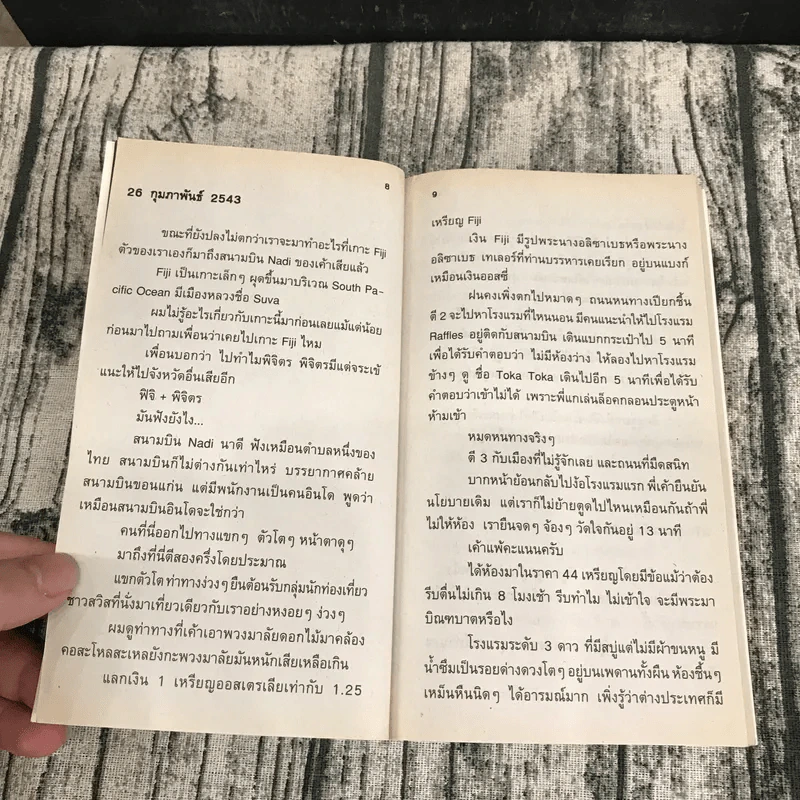 8
26 กุมภาพันธ์ 2543
ขณะที่ยังปลงไม่ตกว่าเราจะมาทำอะไรที่เกาะ Fiji
ตัวของเราเองก็มาถึงสนามบิน Nadi ของเค้าเสียแล้ว
Fiji เป็นเกาะเล็กๆ ผุดขึ้นมาบริเวณ South Pa-
cific Ocean มีเมืองหลวงชื่อ Suva
ผมไม่รู้อะไรเกี่ยวกับเกาะนี้มาก่อนเลยแม้แต่น้อย
ก่อนมาไปถามเพื่อนว่าเคยไปเกาะ Fiji ไหม
เพื่อนบอกว่า ไปทำไมพิจิตร พิจิตรมีแต่จระเข้
แนะให้ไปจังหวัดอื่นเสียอีก
ฟิจิ + พิจิตร
มันฟังยังไง...
สนามบิน Nadi นาดี ฟังเหมือนตำบลหนึ่งของ
ไทย สนามบินก็ไม่ต่างกันเท่าไหร่ บรรยากาศคล้าย
สนามบินขอนแก่น แต่มีพนักงานเป็นคนอินโด พูดว่า
เหมือนสนามบินอินโดจะใช่กว่า
คนที่นี่ออกไปทางแขกๆ ตัวโตๆ หน้าตาดุๆ
มาถึงที่นี่ตีสองครึ่งโดยประมาณ
แขกตัวโตท่าทางง่วงๆ ยืนต้อนรับกลุ่มนักท่องเที่ยว
ชาวสวิสที่นั่งมาเที่ยวเดียวกับเราอย่างหงอยๆ ง่วงๆ
ผมดูท่าทางที่เค้าเอาพวงมาลัยดอกไม้มาคล้อง
คอสะโหลสะเหลยังกะพวงมาลัยมันหนักเสียเหลือเกิน
แลกเงิน 1 เหรียญออสเตรเลียเท่ากับ 1.25
9
เหรียญ Fiji
เงิน Fiji มีรูปพระนางอลิซาเบธหรือพระนาง
อลิซาเบธ เทเลอร์ที่ท่านบรรหารเคยเรียก อยู่บนแบงก์
เหมือนเงินออสซี่
ฝนคงเพิ่งตกไปหมาดๆ ถนนหนทางเปียกชื้น
ตี 2 จะไปหาโรงแรมที่ไหนนอน มีคนแนะนำให้ไปโรงแรม
Raffles อยู่ติดกับสนามบิน เดินแบกกระเป๋าไป 5 นาที
เพื่อได้รับคำตอบว่า ไม่มีห้องว่าง ให้ลองไปหาโรงแรม
ข้างๆ ดู ชื่อ Toka Toka เดินไปอีก 5 นาทีเพื่อได้รับ
คำตอบว่าเข้าไม่ได้ เพราะพี่แกเล่นล็อคกลอนประตูหน้า
ห้ามเข้า
หมดหนทางจริงๆ
ตี 3 กับเมืองที่ไม่รู้จักเลย และถนนที่มืดสนิท
บากหน้าย้อนกลับไปง้อโรงแรมแรก พี่เค้ายืนยัน
นโยบายเดิม แต่เราก็ไม่ย้ายตูดไปไหนเหมือนกันถ้าพี่
ไม่ให้ห้อง เรายืนจดๆ จ้องๆ วัดใจกันอยู่ 13 นาที
เค้าแพ้คะแนนครับ
ได้ห้องมาในราคา 44 เหรียญโดยมีข้อแม้ว่าต้อง
รีบตื่นไม่เกิน 8 โมงเช้า รีบทำไม ไม่เข้าใจ จะมีพระมา
บิณฑบาตหรือไง
โรงแรมระดับ 3 ดาว ที่มีสบู่แต่ไม่มีผ้าขนหนู มี
น้ำซึมเป็นรอยด่างดวงโตๆ อยู่บนเพดานทั้งผืน ห้องชื้นๆ
เหม็นหืนนิดๆ ได้อารมณ์มาก เพิ่งรู้ว่าต่างประเทศก็มี